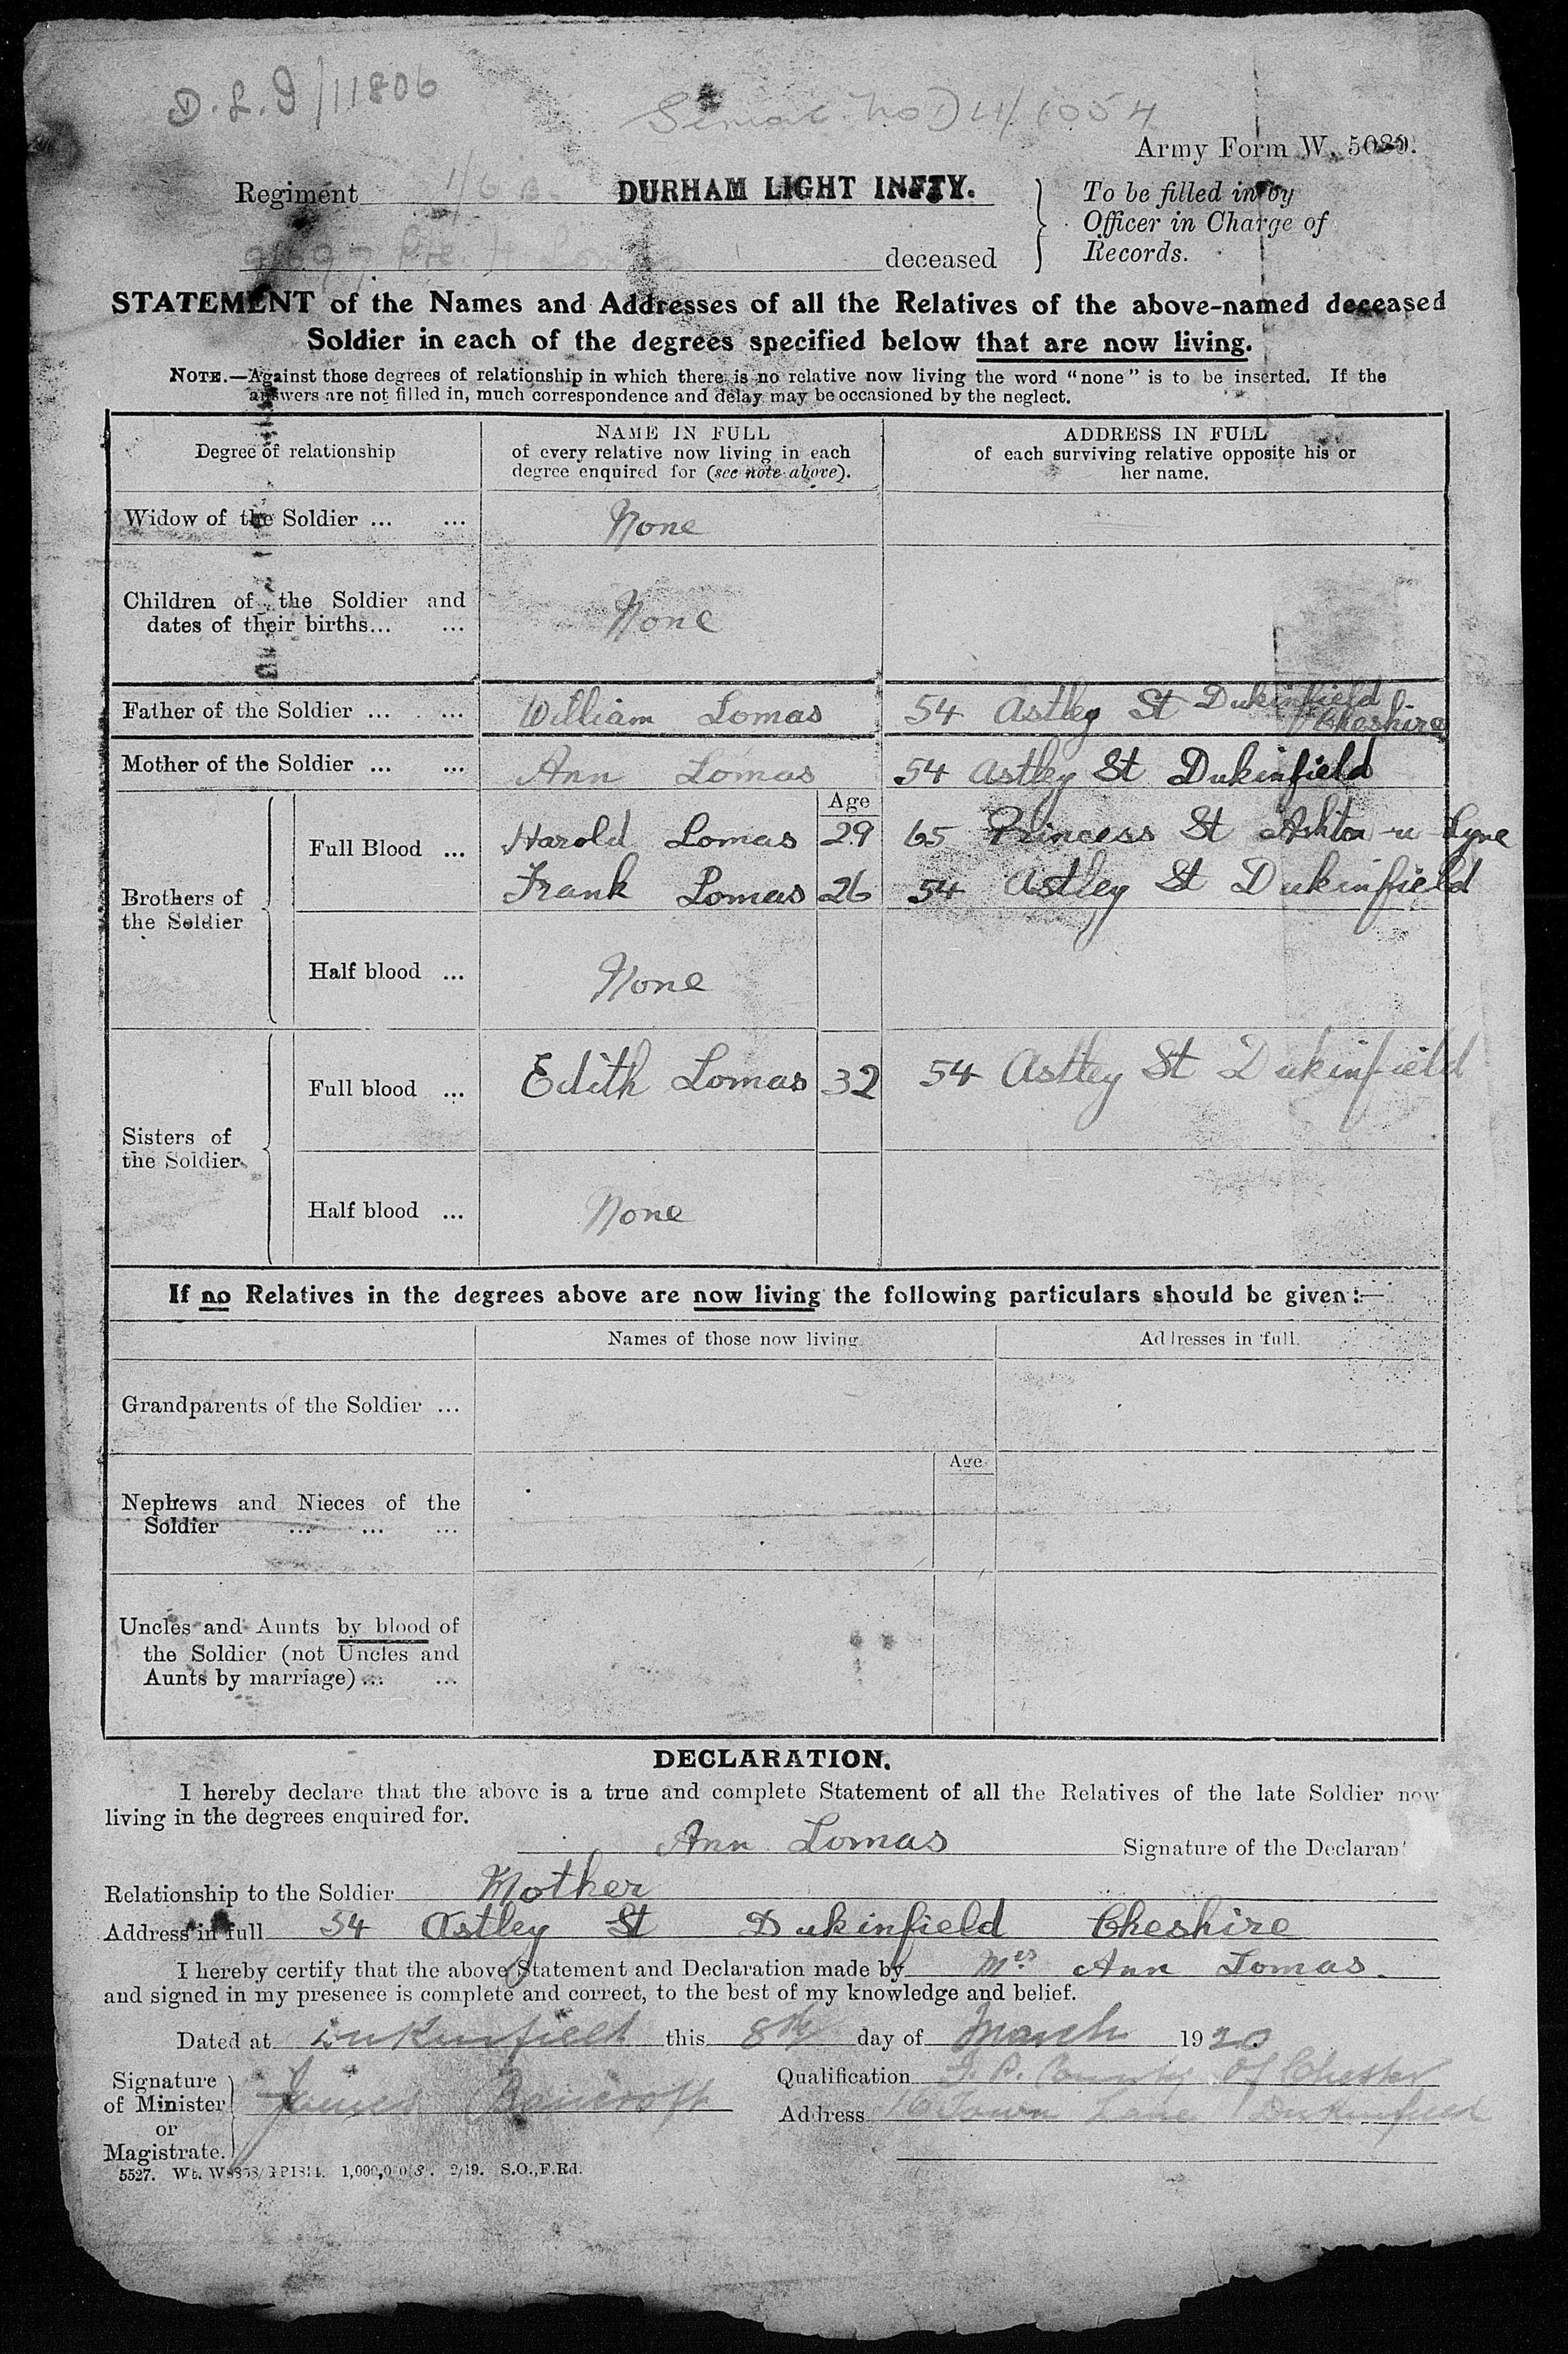 D.L.I/11806
Serial No D 4/1054
Army Form W. 5080.
Regiment 1/6 B DURHAM LIGHT INFTY.
To be filled in by
Officer in Charge of
Records.
Pte H Lomas deceased
STATEMENT of the Names and Addresses of all the Relatives of the above-named deceased
Soldier in each of the degrees specified below that are now living.
NOTE.—Against those degrees of relationship in which there is no relative now living the word "none" is to be inserted. If the
answers are not filled in, much correspondence and delay may be occasioned by the neglect.
Degree of relationship
NAME IN FULL
of every relative now living in each
degree enquired for (see note above).
ADDRESS IN FULL
of each surviving relative opposite his or
her name.
Widow of the Soldier ... ... None
Children of the Soldier and
dates of their births... ... None
Father of the Soldier ... ... William Lomas 54 Astley St Dukinfield
Cheshire
Mother of the Soldier ... ... Ann Lomas 54 Astley St Dukinfield
Age
Brothers of
the Soldier
Full Blood ... Harold Lomas 29 65 Princess St Ashton-u-Lyne
Frank Lomas 26 54 Astley St Dukinfield
Half blood ... None
Sisters of
the Soldier
Full blood ... Edith Lomas 32 54 Astley St Dukinfield
Half blood ... None
If no Relatives in the degrees above are now living the following particulars should be given:—
Names of those now living. Addresses in full.
Grandparents of the Soldier ...
Age
Nephews and Nieces of the
Soldier ... ... ...
Uncles and Aunts by blood of
the Soldier (not Uncles and
Aunts by marriage)... ...
DECLARATION.
I hereby declare that the above is a true and complete Statement of all the Relatives of the late Soldier now
living in the degrees enquired for.
Ann Lomas Signature of the Declarant
Relationship to the Soldier Mother
Address in full 54 Astley St Dukinfield Cheshire
I hereby certify that the above Statement and Declaration made by Mrs Ann Lomas.
and signed in my presence is complete and correct, to the best of my knowledge and belief.
Dated at Dukinfield this 8th day of March 1920
Signature
of Minister
or
Magistrate.
James Bancroft
Qualification J.P. County of Chester
Address 16 Town Lane Dukinfield
5527. Wt. 1,000,000 2/19. S.O.,F.Rd.